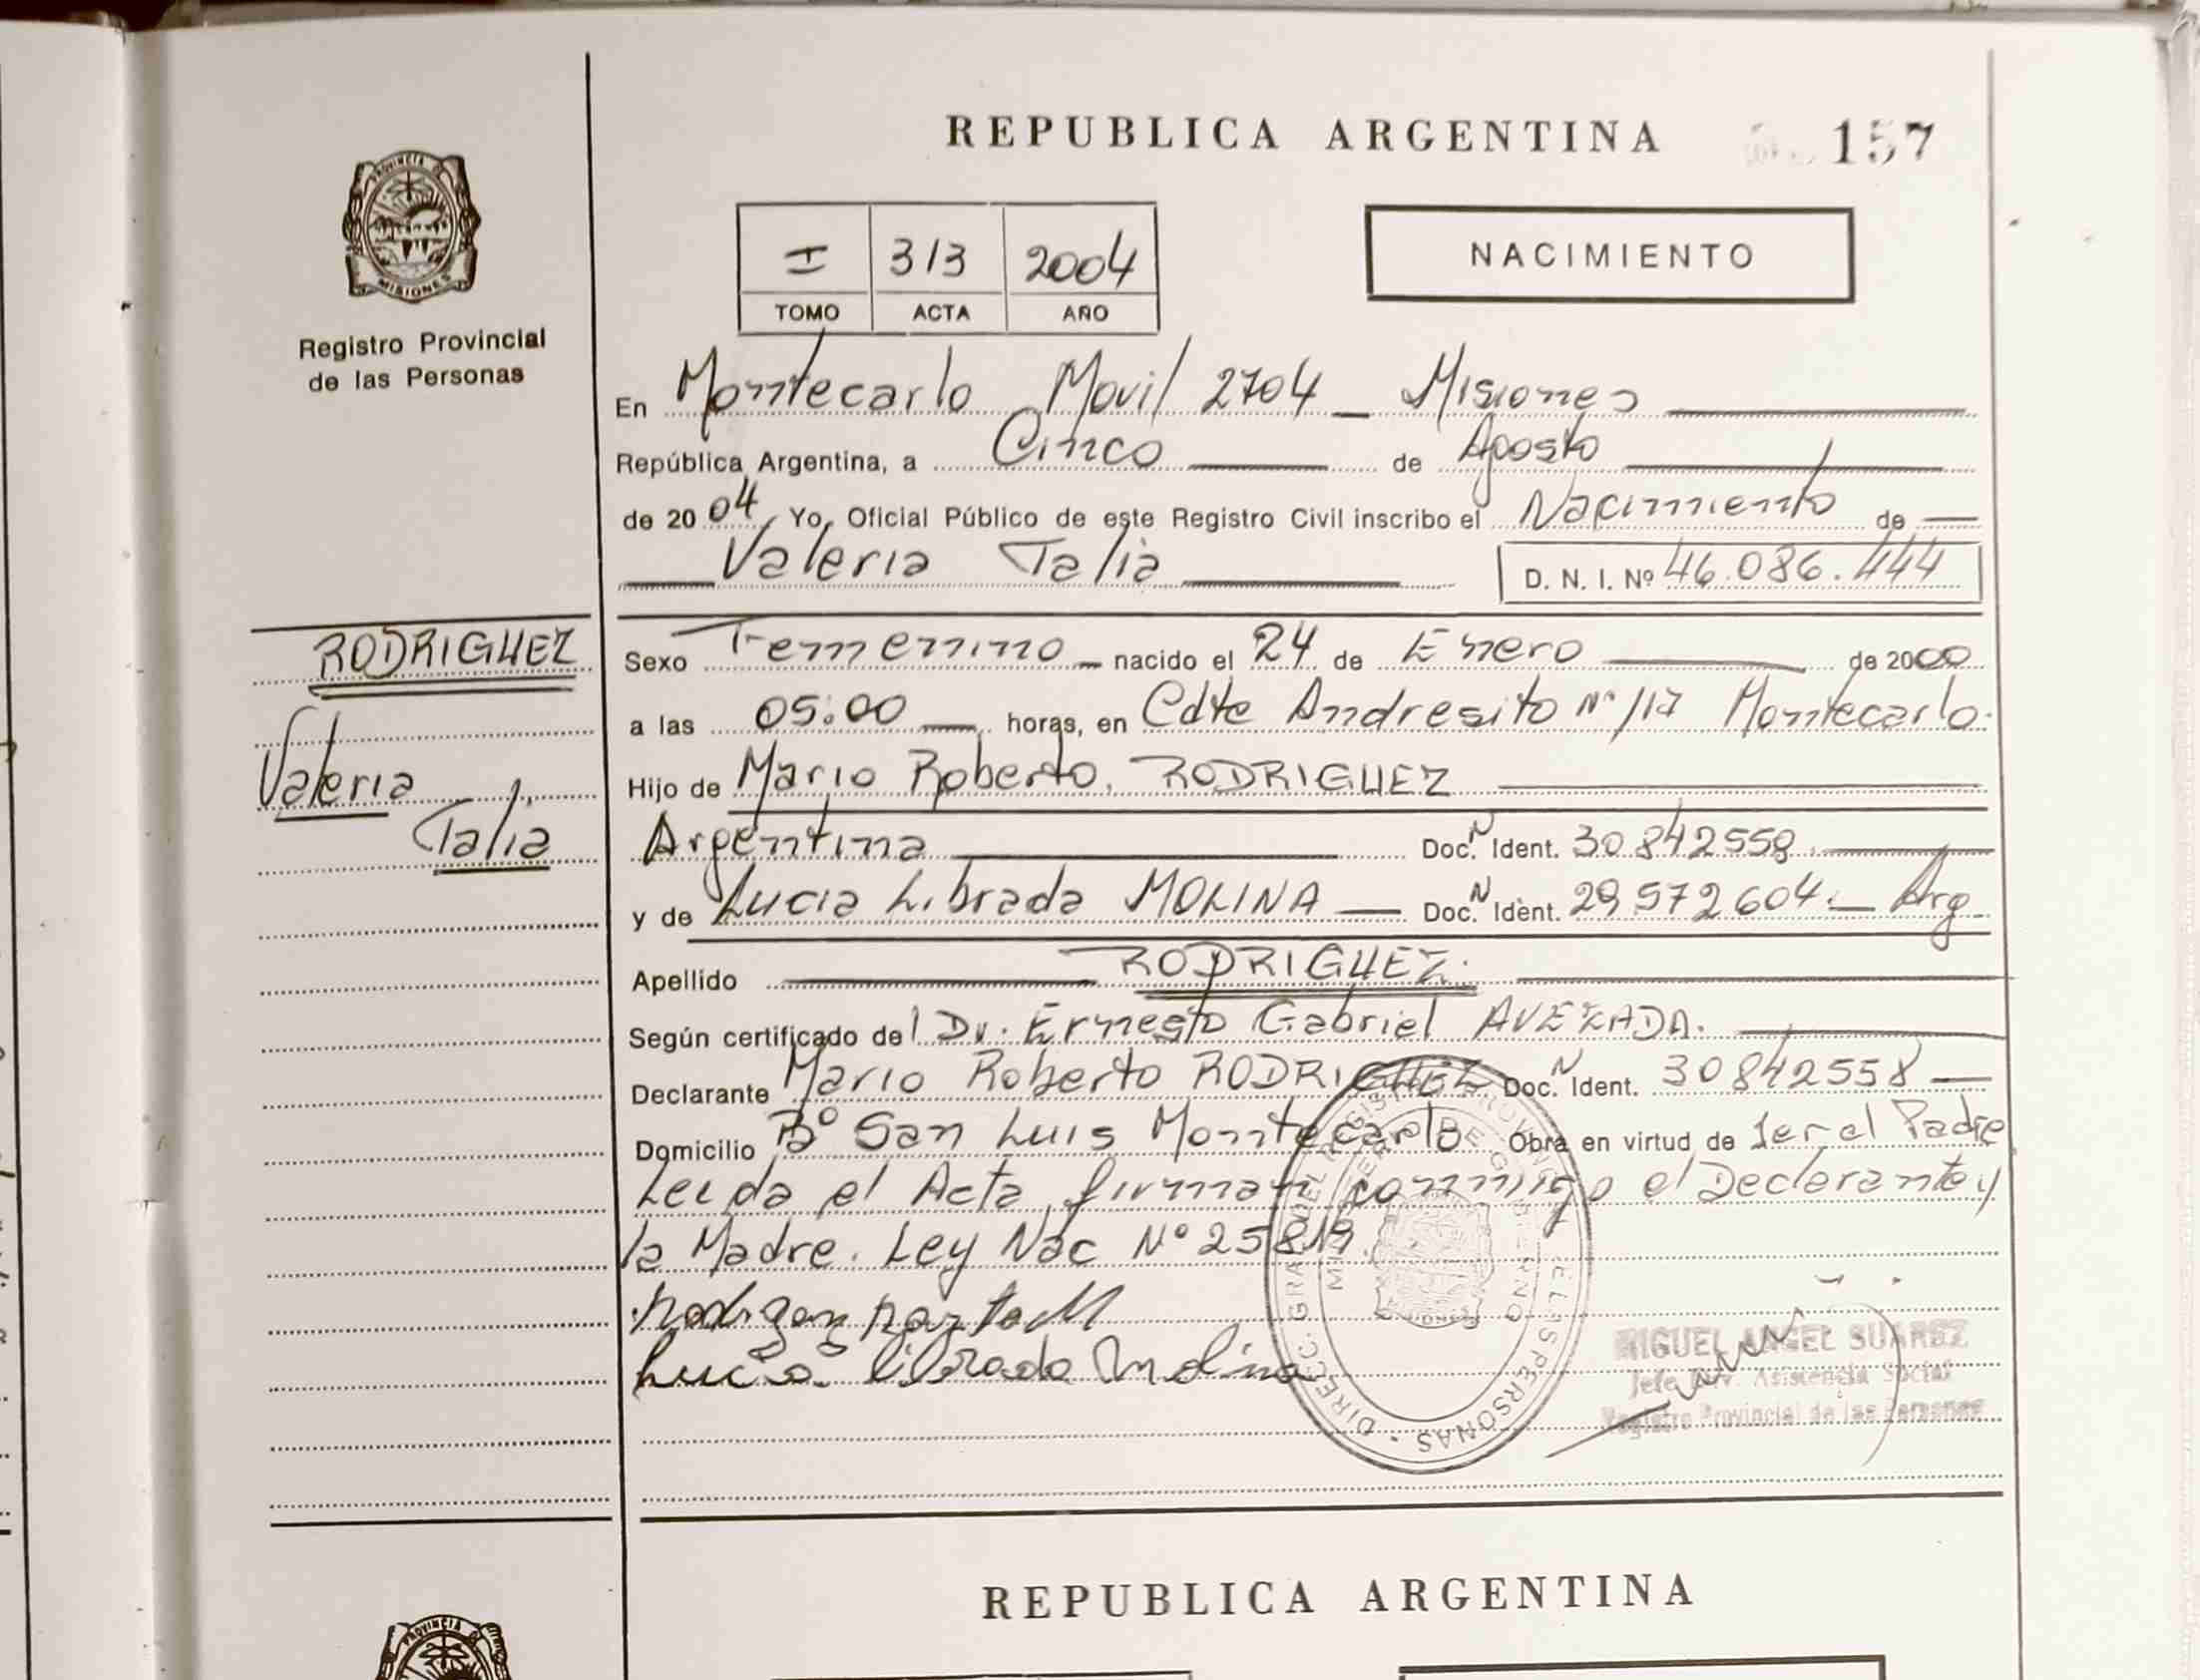 REPUBLICA ARGENTINA
157
PROVINCIA D
MISIONES
Registro Provincial
de las Personas
I 313 2004
TOMO ACTA AÑO
NACIMIENTO
En Montecarlo Movil 2704 _ Misiones
República Argentina, a Cinco de Agosto
de 20 04 Yo, Oficial Público de este Registro Civil inscribo el Nacimiento de
Valeria Talia
D. N. I. Nº 46.086.444
RODRIGUEZ
Valeria
Talia
Sexo Femenino nacido el 24 de Enero de 2000
a las 05:00 horas, en Cdte Andresito Nº 117 Montecarlo.
Hijo de Mario Roberto, RODRIGUEZ
Argentina Doc. N Ident. 30842558.
y de Lucia Librada MOLINA Doc. N Ident. 29572604. Arg
Apellido RODRIGUEZ.
Según certificado del Dr. Ernesto Gabriel
Declarante Mario Roberto RODRIGUEZ Doc. N Ident. 30842558
Domicilio Bº San Luis Montecarlo Obra en virtud de ser el Padre
Leida el Acta, firman conmigo el Declarante y
la Madre. Ley Nac Nº 25819.
Lucia librada Molina
MIGUEL ANGEL SUAREZ
Jefe Div. Asistencia Social
Registro Provincial de las Personas
REPUBLICA ARGENTINA
PROVINCIA D